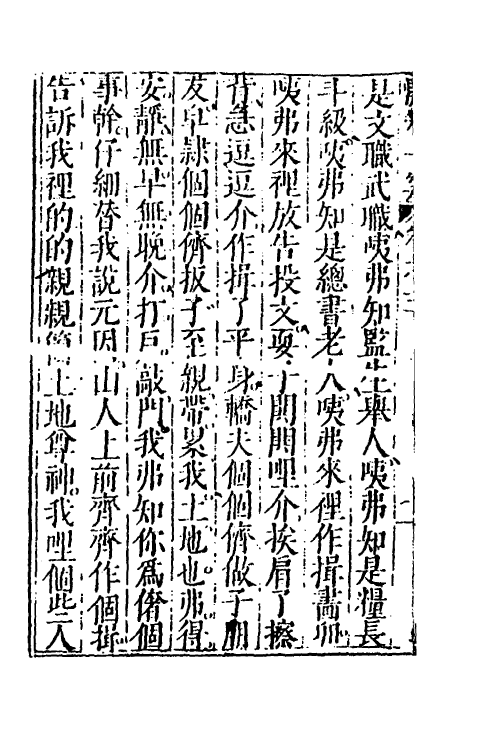 是文職武職咦弗知監生舉人咦弗知是糧長
斗級咦弗知是總書老人咦弗來裡作揖畫卯
咦弗來裡放告投文耍子閙閙哩介挨肩了擦
背急逗逗介作揖了平身轎夫個個儕做子朋
友皁隷個個儕扳子至親帶累我土地也弗得
安靜無早無晚介打戶敲門我弗知你爲僭個
事幹仔細替我說元因山人上前齊齊作個揖
告訴我裡的的親親個土地尊神我哩個些人